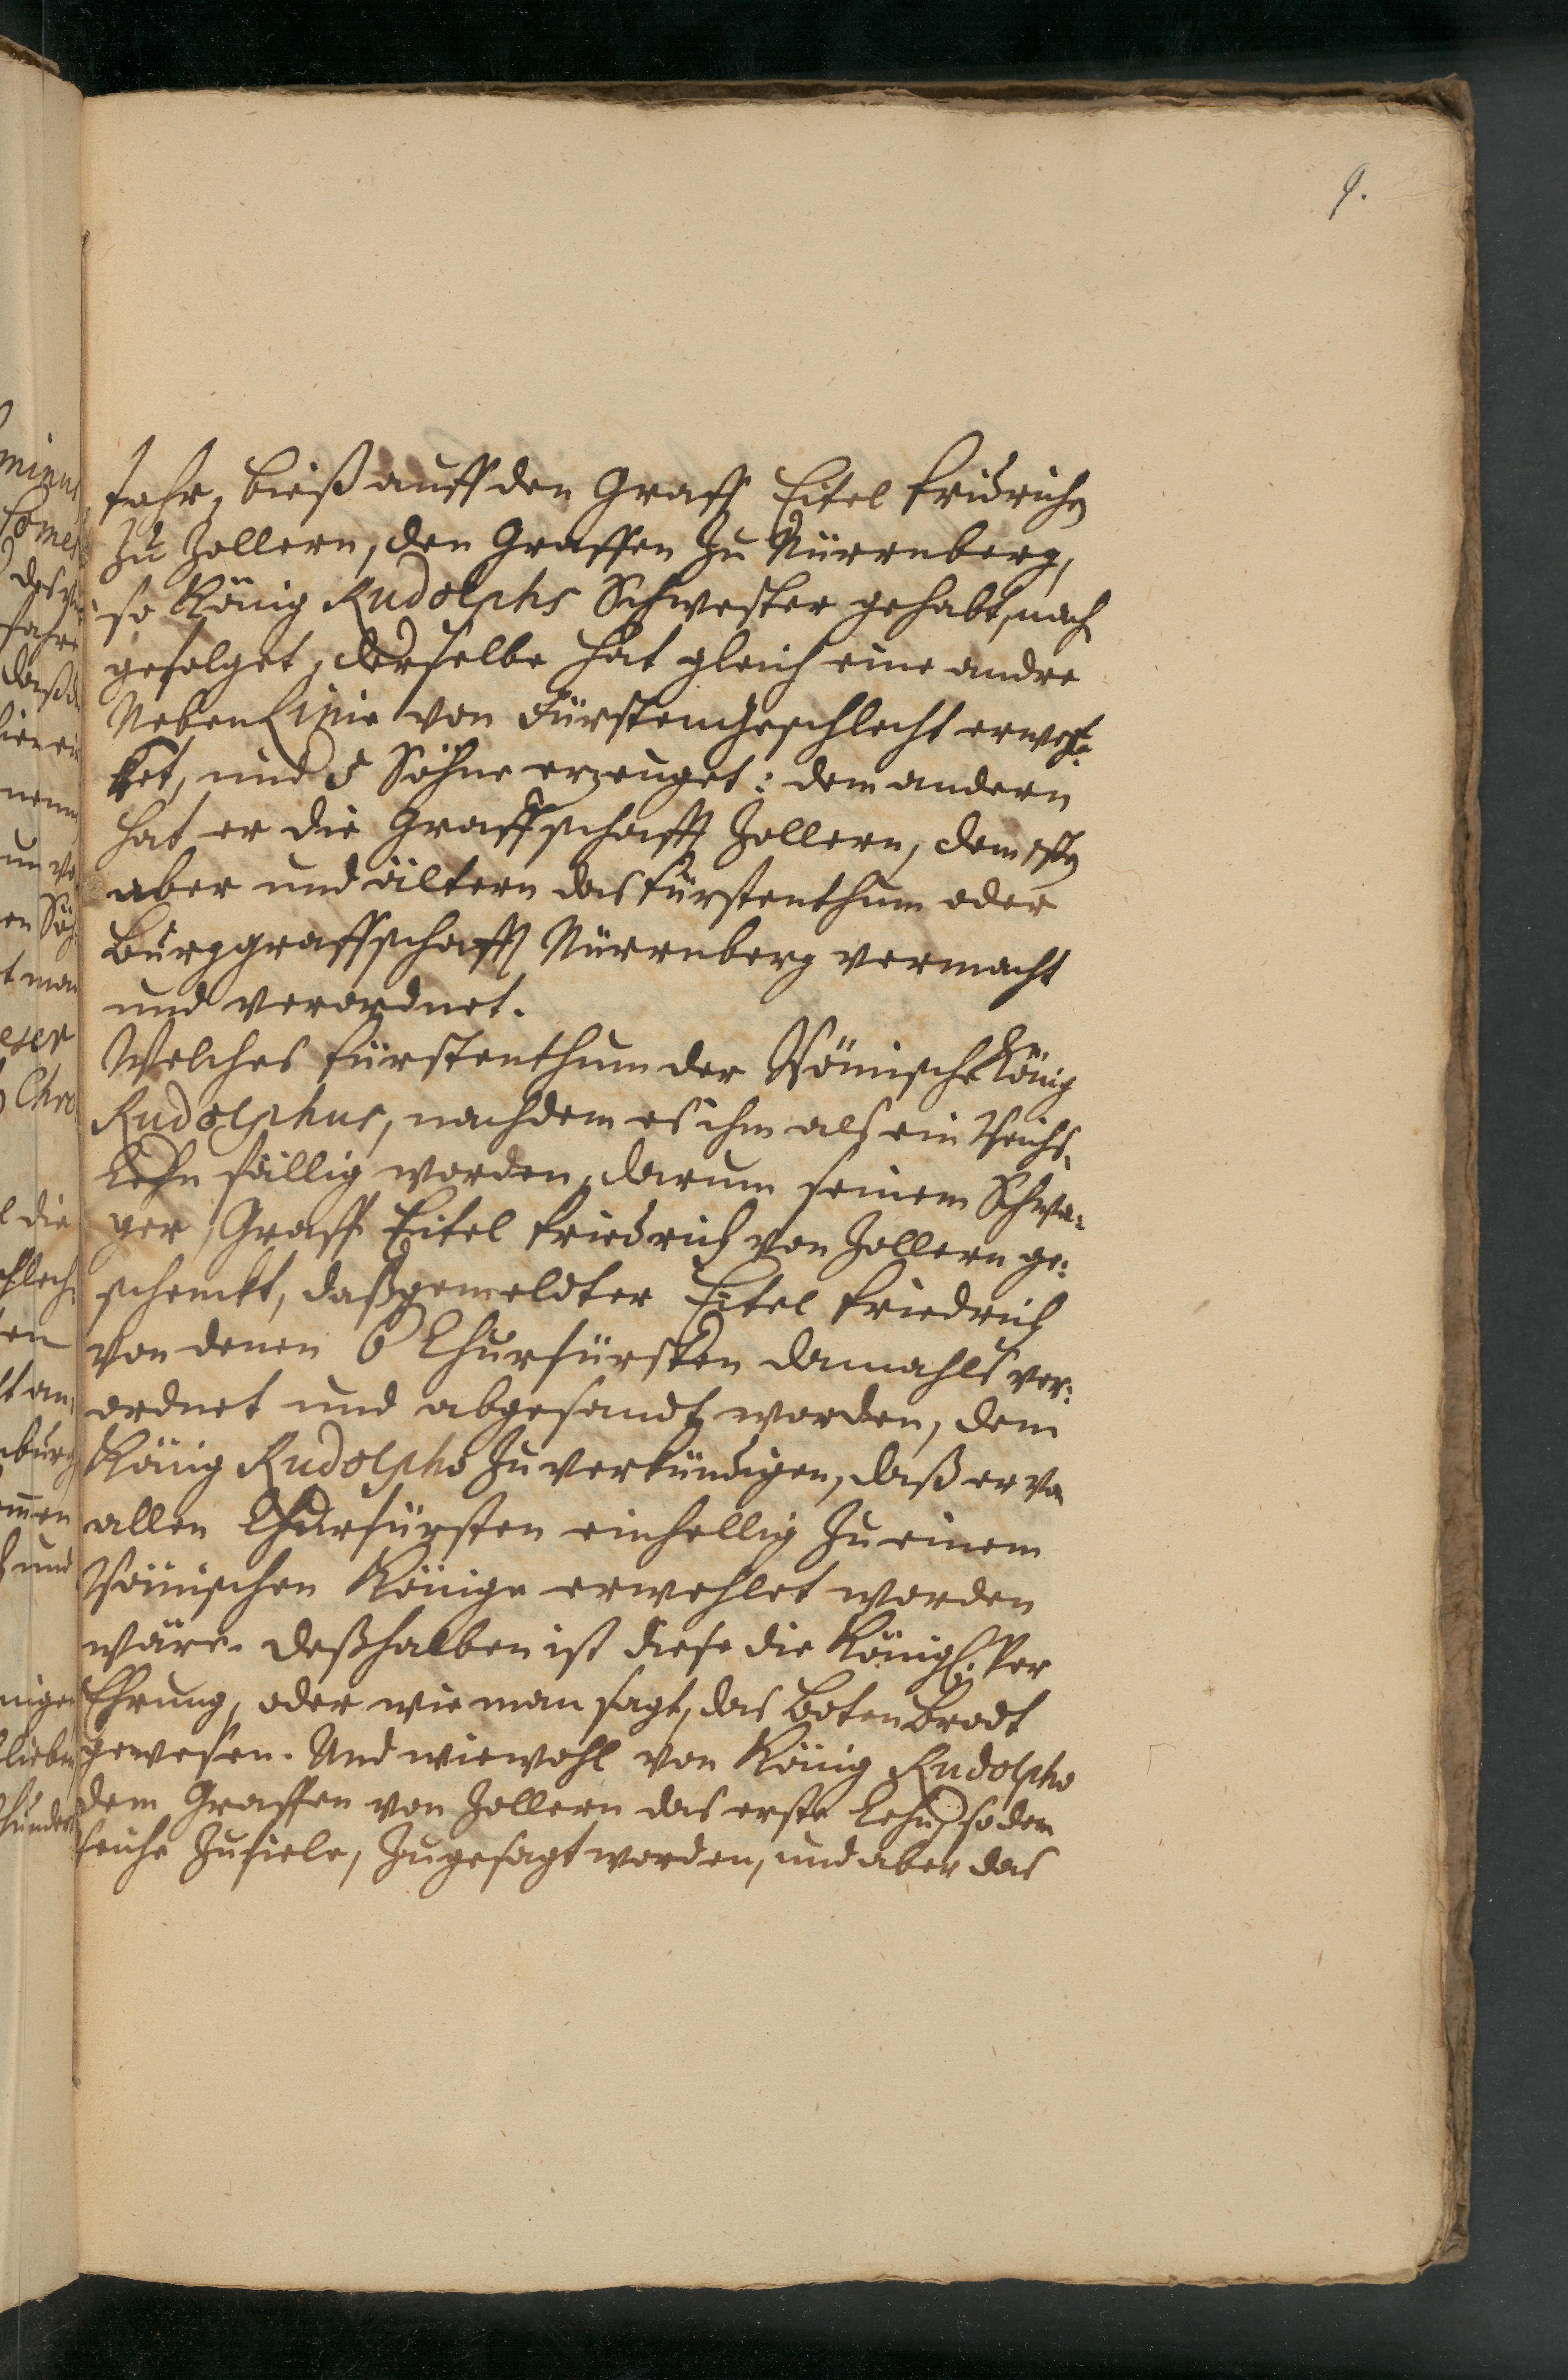 9.
Jahr, bieß auff den Graff Eitel Fridrichen
zu Zollern, den Graffen zu Nürrnberg,
so König Rudolphs Schwester gehabt, nach
gefolget, derselbe hat gleich eine andre
Neben Linie von Fürstengeschlecht erwe-
ket, und 5 Söhne erzeuget: dem andern
hat er die Graffschafft Zollern, dem
aber und ältern das Fürstenthum oder
Burggraffschafft Nürrnberg vermacht
und verordnet.
Welches Fürstenthum der Römische König
Rudolphus, nachdem es ihm als ein Reichs-
Lehn fällig worden, darum seinem Schwa-
ger, Graff Eitel Friedrich von Zollern ge-
schenckt, daß gemeldter Eitel Friedrich
von denen 6 Churfürsten damahls ver-
ordnet und abgesandt worden, dem
König Rudolpho zu verkündigen, daß er von
allen Churfürsten einhellig zu einem
Römischen Könige erwehlet worden
wäre. Deßhalben ist diese die Königl. Ver
Ehrung, oder wie man sagt, das Botenbrodt
gewesen. Und wiewohl von König Rudolpho
dem Graffen von Zollern das erste Lehn, so dem
Reiche zufiele, zugesagt worden, und aber das